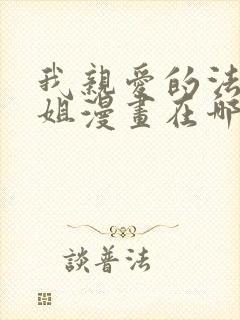 我親愛的法
姐漫畫在哪
談普法